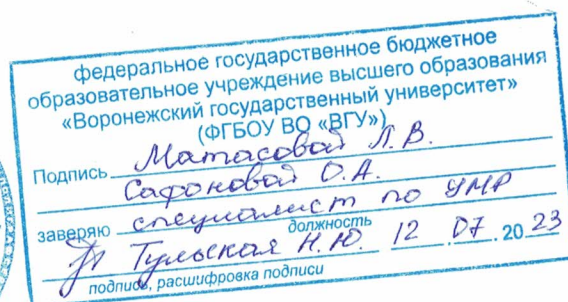 федеральное государственное бюджетное
образовательное учреждение высшего образования
«Воронежский государственный университет»
(ФГБОУ ВО «ВГУ»)
Подпись Матасовой Л. В.
Сафоновой О.А.
заверяю специалист по УМР
должность
Тульская Н.Ю. 12 . 07 . 20 23
подпись, расшифровка подписи